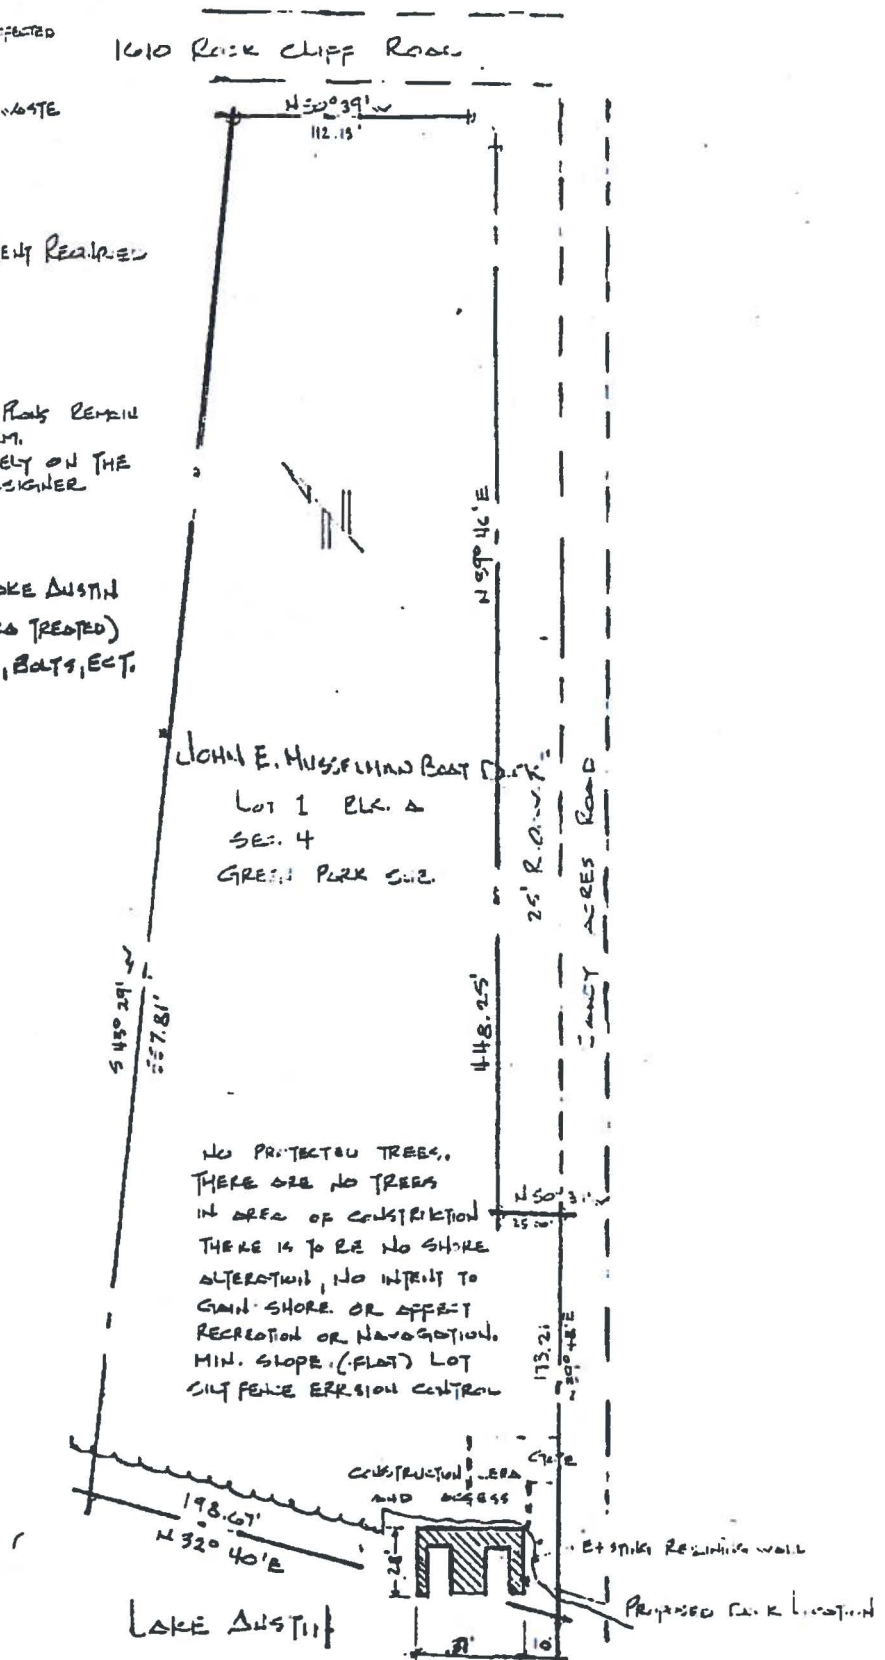 1610 Rock Cliff Road
N 50° 39' W
112.15'
ENT REQUIRED
PLANS REMAIN
ELY ON THE
SIGNER
AKE AUSTIN
TREATED)
, BOLTS, ECT.
N 39° 46' E
JOHN E. MUSSELMAN BOAT DOCK
LOT 1 BLK. A
SEC. 4
GREEN PARK SUB.
25' R.O.W.
ACRES ROAD
S 43° 29' W
448.25'
NO PROTECTED TREES.
THERE ARE NO TREES
IN AREA OF CONSTRUCTION
THERE IS TO BE NO SHORE
ALTERATION, NO INTENT TO
GAIN SHORE OR AFFECT
RECREATION OR NAVAGATION.
MIN. SLOPE (FLAT) LOT
SILT FENCE ERRSION CONTROL
N 50°
25.00'
173.21
CONSTRUCTION AREA
AND ACCESS
GATE
198.67'
N 32° 40' E
28'
LAKE AUSTIN
10'
RETAINING WALL
PROPOSED DOCK LOCATION